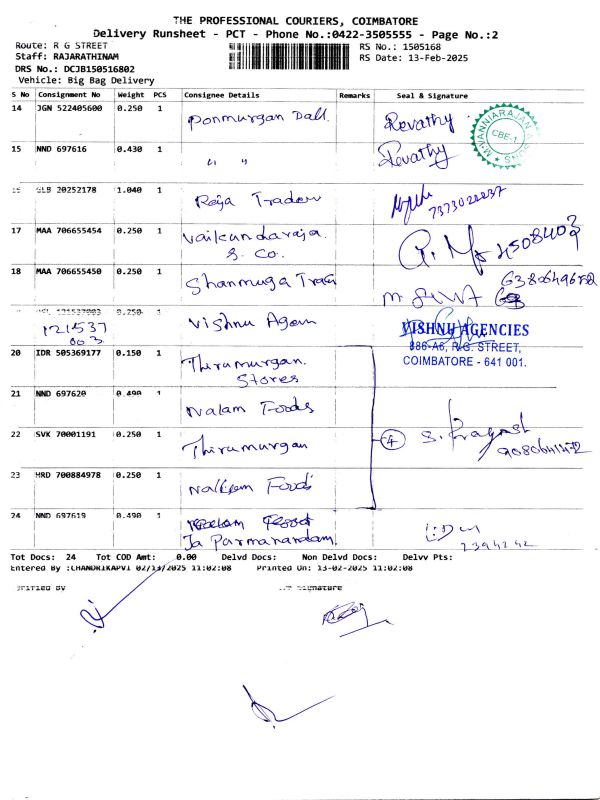 THE PROFESSIONAL COURIERS, COIMBATORE
Delivery Runsheet - PCT - Phone No.:0422-3505555 - Page No.:2
Route: R G STREET
RS No.: 1505168
Staff: RAJARATHINAM
RS Date: 13-Feb-2025
DRS No.: DCJB150516802
Vehicle: Big Bag Delivery
S No Consignment No Weight PCS Consignee Details Remarks Seal & Signature
14 JGN 522405600 0.250 1 Ponmurgan Dall. Revathy
CBE-1
15 NND 697616 0.430 1 " " Revathy
GLB 20252178 1.040 1 Raja Traders
7373022237
17 MAA 706655454 0.250 1 Vaikundaraja
& Co.
18 MAA 706655450 0.250 1 Shanmuga
0.250 1 Vishnu Agen
121537
003
VISHNU AGENCIES
886-A6, R.G. STREET,
COIMBATORE - 641 001.
20 IDR 505369177 0.150 1 Thirumurgan.
Stores
21 NND 697620 0.490 1 Nalam Foods
22 SVK 70001191 0.250 1 Thirumurgan
4
23 HRD 700884978 0.250 1 Foods
24 NND 697619 0.490 1
Ja Parmanandam
Tot Docs: 24 Tot COD Amt: 0.00 Delvd Docs: Non Delvd Docs: Delvv Pts:
Entered By :CHANDRIKAPV1 02/13/2025 11:02:08 Printed On: 13-02-2025 11:02:08
Signature